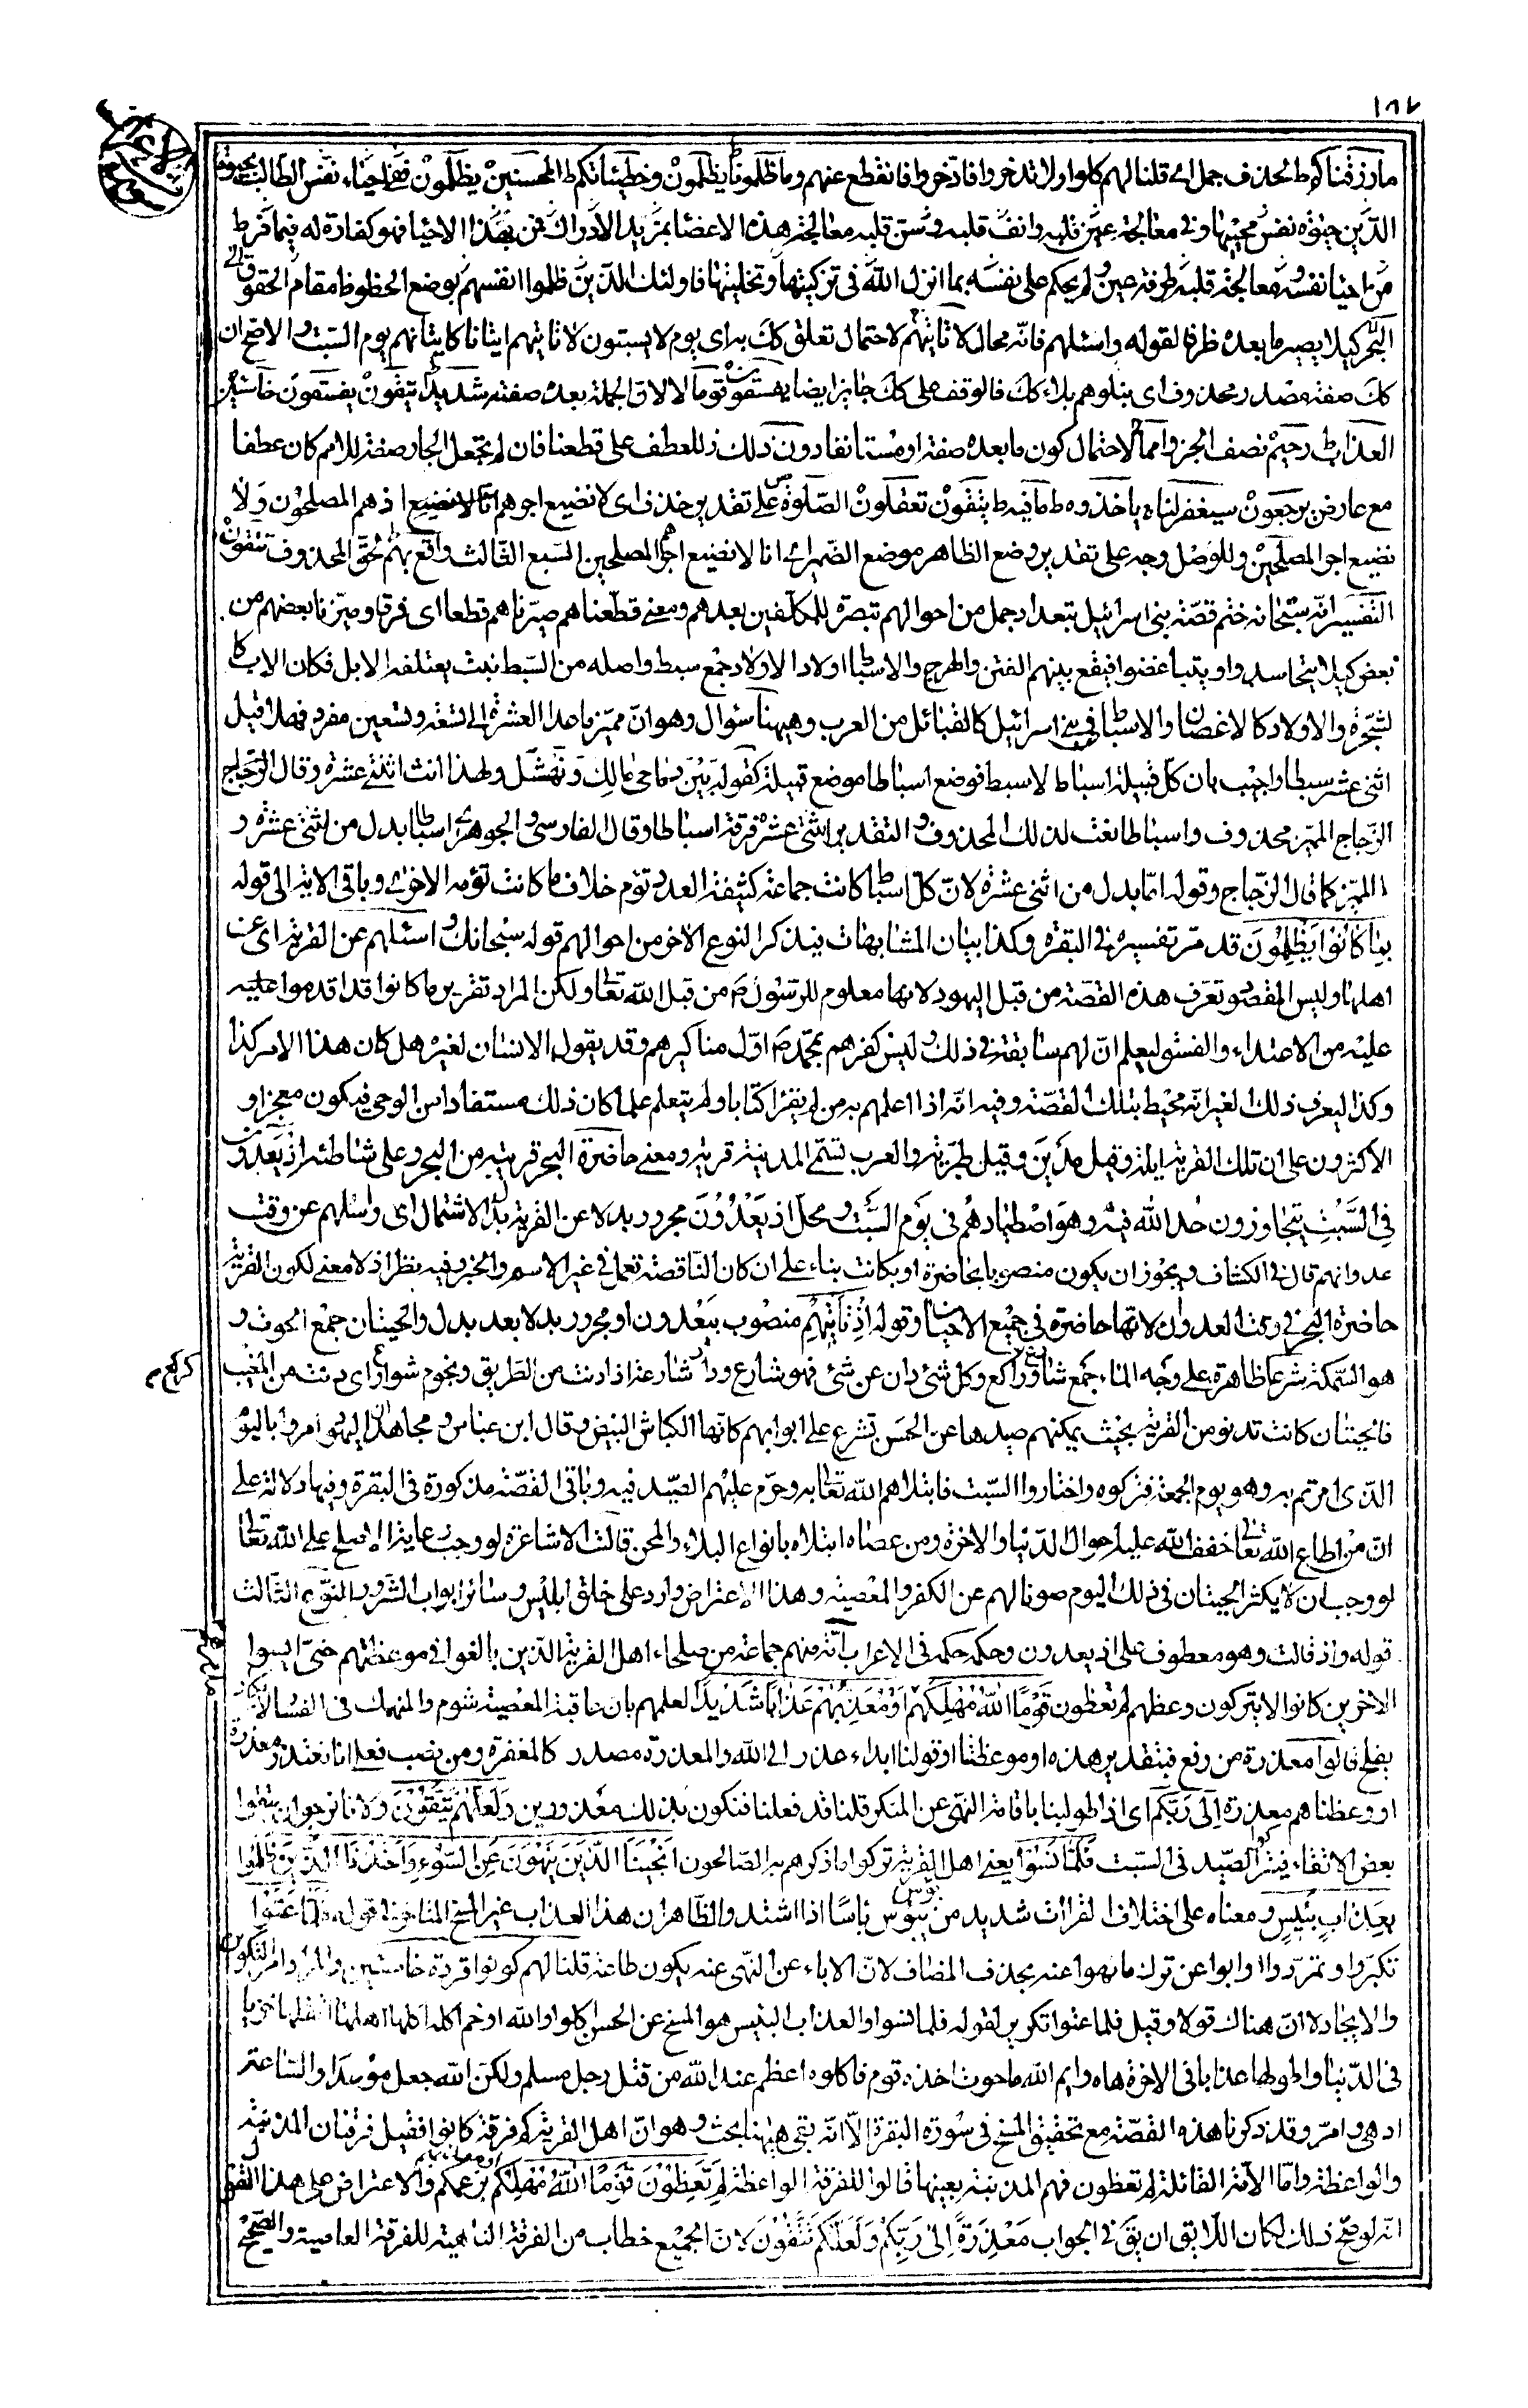 ١٨٧
ما رزقناكم ط لحذف جمل اى قلنا لهم كلوا ولا تدخروا فادخروا فانقطع عنهم وما ظلمونا يظلمون وخطيئاتكم ط المحسنين يظلمون
الذين
من احيا نفسه ومعالجة قلبه طرفة عين ولم يحكم على نفسه بما انزل الله فى تزكيتها وتحليتها فاولئك الذين ظلموا انفسهم بوضع الحظوظ مقام الحقوق
البحر كيلا يصير ما بعده ظرفا لقوله واسئلهم فانه محال لا تاتيهم لاحتمال تعلق كذلك به اى يوم لا يسبتون لا تاتيهم اتيانا كاتيانهم يوم السبت والاصح ان
كذلك صفة مصدر محذوف اى نبلوهم بلاء كذلك فالوقف على كذلك جايز ايضا يفسقون قوما لا لان الجملة بعده صفة شديدا يتقون يفسقون خاسئين
العذاب ط رحيم نصف الجزء امما لاحتمال كون ما بعده صفة او مستانفا دون ذلك ز للعطف على قطعنا فان لم يجعل الجار صفة للامم كان عطفا
مع عارض يرجعون سيغفر لنا ج ياخذوه ط ما فيه ط يتقون تعقلون الصلوة على تقدير حذف اى لا نضيع اجرهم انا لا نضيع اذ هم المصلحون ولا
نضيع اجر المصلحين وللوصل وجه على تقدير وضع الظاهر موضع الضمير اى انا لا نضيع اجر المصلحين السبع الثالث واقع بهم لحق المحذوف تتقون
التفسير انه سبحانه ختم قصة بنى اسرائيل بتعداد جمل من احوالهم تبصرة للمكلفين بعدهم ومعنى قطعناهم صيرناهم قطعا اى فرقا وميزنا بعضهم من
بعض كيلا يتحاسدوا ويتباغضوا فيقع بينهم الفتن والهرج والاسباط اولاد الاولاد جمع سبط واصله من السبط نبت يعتلفه الابل فكان الاب كا
لشجرة والاولاد كالاغصان والاسباط فى بنى اسرائيل كالقبائل من العرب وههنا سؤال وهو ان مميز ما عدا العشرة الى تسعة وتسعين مفرد فهلا قيل
اثنى عشر سبطا واجيب بان كل قبيلة اسباط لا سبط فوضع اسباطا موضع قبيلة كقوله بين رماحى مالك ونهشل ولهذا انث اثنتى عشرة وقال الزجاج
الزجاج المميز محذوف واسباطا نعت لذلك المحذوف والتقدير اثنتى عشرة فرقة اسباطا وقال الفارسى والجوهرى اسباطا بدل من اثنتى عشرة و
المميز كما قال الزجاج وقوله امما بدل من اثنتى عشرة لان كل اسباط كانت جماعة كثيفة العدد تؤم خلاف ما كانت تؤمه الاخرى وباقى الاية الى قوله
بما كانوا يظلمون قد مر تفسيره فى البقرة وكذا بيان المتشابهات ثم ذكر النوع الاخر من احوالهم قوله سبحانه واسئلهم عن القرية اى عن
اهلها وليس المقصود تعرف هذه القصة من قبل اليهود لانها معلوم للرسول ص من قبل الله تعا ولكن المراد تقرير ما كانوا قد اقدموا عليه
عليه من الاعتداء والفسق ليعلم ان لهم سابقة فى ذلك وليس كفرهم بمحمد ص اول مناكيرهم وقد يقول الانسان لغيره هل كان هذا الامر كذا
وكذا ليعرف ذلك الغير انه محيط بتلك القصة وفيه انه اذا اعلمهم به من لم يقرأ كتابا ولم يتعلم علما كان ذلك مستفادا من الوحى فيكون معجزا و
الاكثرون على ان تلك القرية ايلة وقيل مدين وقيل طبرية والعرب تسمى المدينة قرية ومعنى حاضرة البحر قريبة من البحر وعلى شاطئه اذ يعدون
فى السبت يتجاوزون حد الله فيه وهو اصطيادهم فى يوم السبت ومحل اذ يعدون مجرور بدلا عن القرية بدل الاشتمال اى واسئلهم عن وقت
عدوانهم قال فى الكشاف ويجوز ان يكون منصوبا بحاضرة او بكانت بناء على ان كان الناقصة تعمل فى غير الاسم والخبر وفيه نظر اذ لا معنى لكون القرية
حاضرة البحر فى وقت العدوان لانها حاضرة فى جميع الاحيان وقوله اذ تاتيهم منصوب بيعدون او مجرور بدلا بعد بدل والحيتان جمع الحوت و
هو السمكة شرعا ظاهرة على وجه الماء جمع شارع كركع وراكع وكل شئ دان عن شئ فهو شارع ودار شارعة اذا دنت من الطريق ونجوم شوارع اى دنت من المغيب
فالحيتان كانت تدنو من القرية بحيث يمكنهم صيدها عن الحسن تشرع على ابوابهم كانها الكباش البيض وقال ابن عباس ومجاهد ان اليهود امروا باليوم
الذى امرتم به وهو يوم الجمعة فتركوه واختاروا السبت فابتلاهم الله تعا به وحرم عليهم الصيد فيه وباقى القصة مذكورة فى البقرة وفيها دلالة على
ان من اطاع الله تعا خفف الله عليه احوال الدنيا والاخرة ومن عصاه ابتلاه بانواع البلاء والمحن قالت الاشاعرة لو وجب رعاية الاصلح على الله تعا
لو وجب ان لا يكثر الحيتان فى ذلك اليوم صونا لهم عن الكفر والمعصية وهذا الاعتراض وارد على خلق ابليس وسائر ابواب الشرور النوع الثالث
قوله واذ قالت وهو معطوف على اذ يعدون وحكمه حكمه فى الاعراب امة منهم جماعة من صلحاء اهل القرية الذين بالغوا فى موعظتهم حتى ايسوا
الاخرين كانوا لا يتركون وعظهم لم تعظون قوما الله مهلكهم او معذبهم عذابا شديدا لعلمهم بان عاقبة المعصية شوم والمنهمك فى الفساد لا يكاد
يفلح قالوا معذرة من رفع فبتقدير هذه او موعظتنا او قولنا ابداء عذر الى الله والمعذرة مصدر كالمغفرة ومن نصب فعلى انا نعتذر معذرة
او وعظناهم معذرة الى ربكم اى اذا طولبنا باقامة النهى عن المنكر قلنا قد فعلنا فنكون بذلك معذورين ولعلهم يتقون ولانا نرجوا ان يتقوا
بعض الاتقاء فيتركوا الصيد فى السبت فلما نسوا يعنى اهل القرية تركوا ما ذكرهم به الصالحون انجينا الذين ينهون عن السوء واخذنا الذين ظلموا
بعذاب بئيس ومعناه على اختلاف القراات شديد من بئوس بؤس باسا اذا اشتد والظاهر ان هذا العذاب غير المسخ المتاخر فى قوله فلما عتوا
تكبروا وتمردوا وابوا عن ترك ما نهوا عنه بحذف المضاف لان الاباء عن النهى عنه يكون طاعة قلنا لهم كونوا قردة خاسئين والمراد امر التكوين
والايجاد لا ان هناك قولا وقيل فلما عتوا تكرير لقوله فلما نسوا والعذاب البئيس هو المسخ عن الحسن اكلوا والله اوخم اكلة اكلها اهلها اثقلها خزيا
فى الدنيا واطولها عذابا فى الاخرة هاه وايم الله ما حوت اخذه قوم فاكلوه اعظم عند الله من قتل رجل مسلم ولكن الله جعل موعدا والساعة
ادهى وامر وقد ذكرنا هذه القصة مع تحقيق المسخ فى سورة البقرة الا انه بقى ههنا بحث وهو ان اهل القرية كم فرقة كانوا فقيل فرقتان المذنبة
والواعظة واما الامة القائلة لم تعظون فهم المذنبة بعينها قالوا للفرقة الواعظة لم تعظون قوما الله مهلكهم بزعمكم والاعتراض على هذا القول
انه لو صح ذلك لكان اللائق ان يق فى الجواب معذرة الى ربكم ولعلكم تتقون لان الجميع خطاب من الفرقة الناهية للفرقة العاصية والصحيح